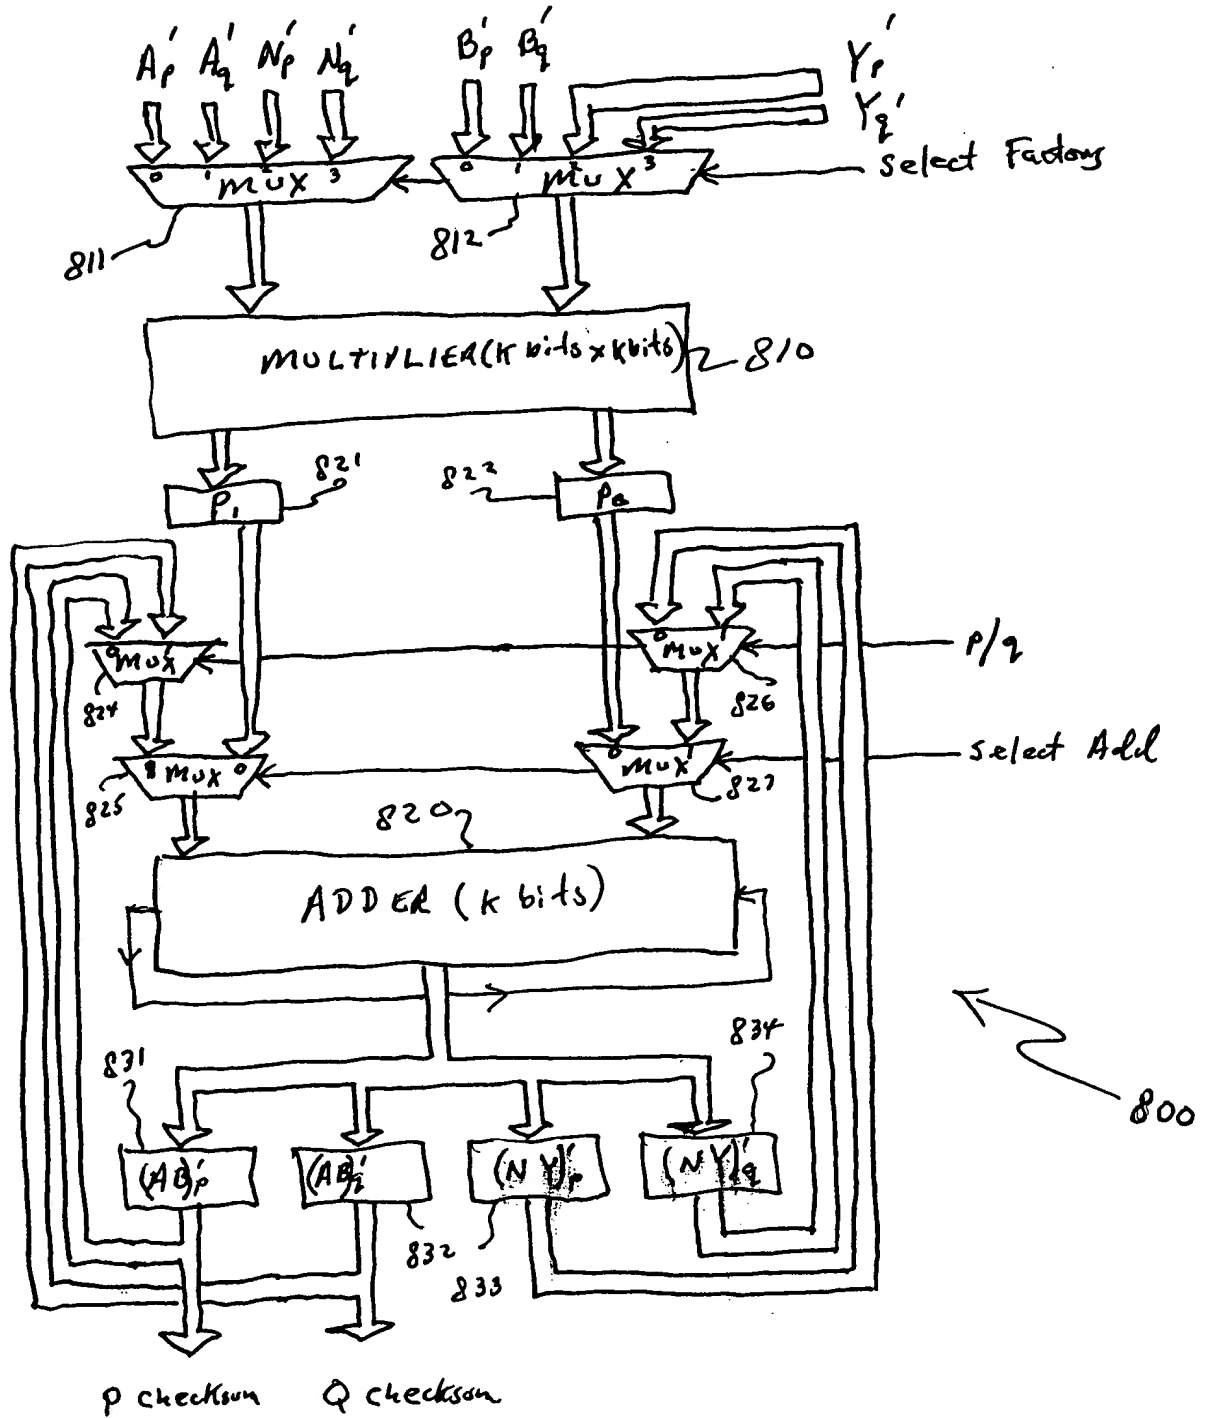 A'p A'q N'p N'q B'p B'q Y'p
Y'q
Select Factors
0 1 2 MUX 3
0 1 2 MUX 3
811
812
MULTIPLIER (K bits x K bits)
810
821
822
P1
P0
0 MUX 1
0 MUX 1
P/q
824
826
1 MUX 0
0 MUX 1
Select Add
825
827
820
ADDER (K bits)
831
834
800
(AB)'p
(AB)'q
(NY)'p
(NY)'q
832
833
P checksum
Q checksum